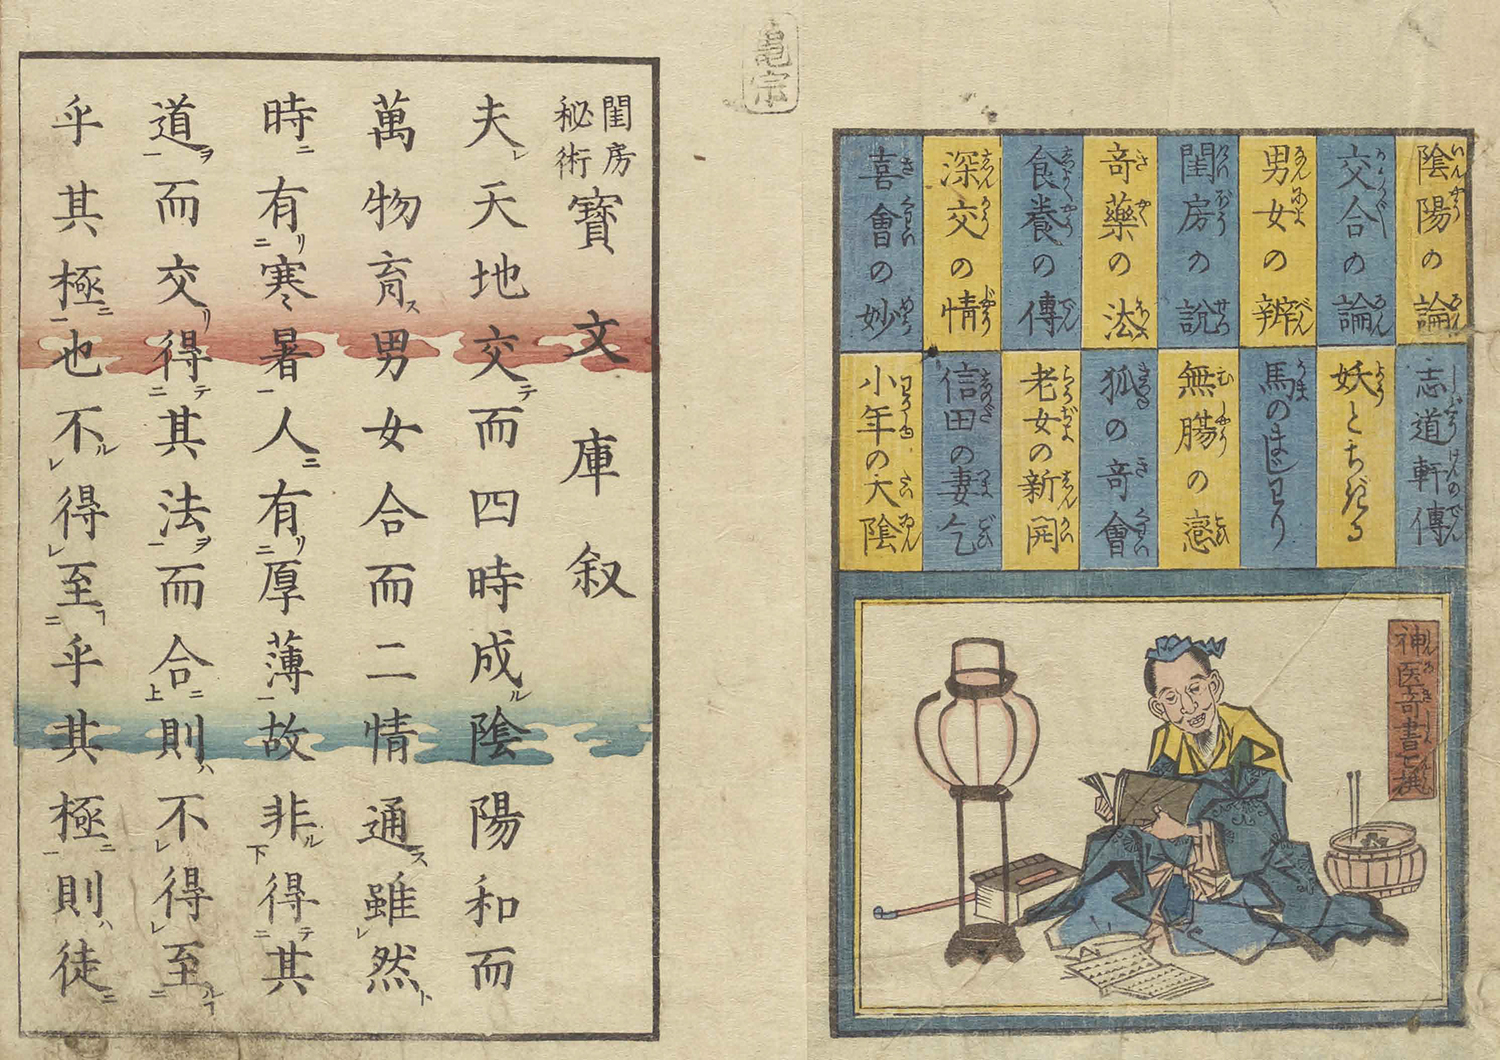 亀宗
陰陽の論
交合の論
男女の辨
閨房の説
奇藥の法
食養の傳
深交の情
喜會の妙
志道軒傳
妖とちぎる
馬のまじハり
無腸の戀
狐の奇會
老女の新開
信田の妻乞
小年の大陰
神医奇書を撰
閨房秘術
寳文庫叙
夫天地交而四時成陰陽和而
萬物育男女合而二情通雖然
時有寒暑人有厚薄故非得其
道而交得其法而合則不得至
乎其極也不得至乎其極則徒